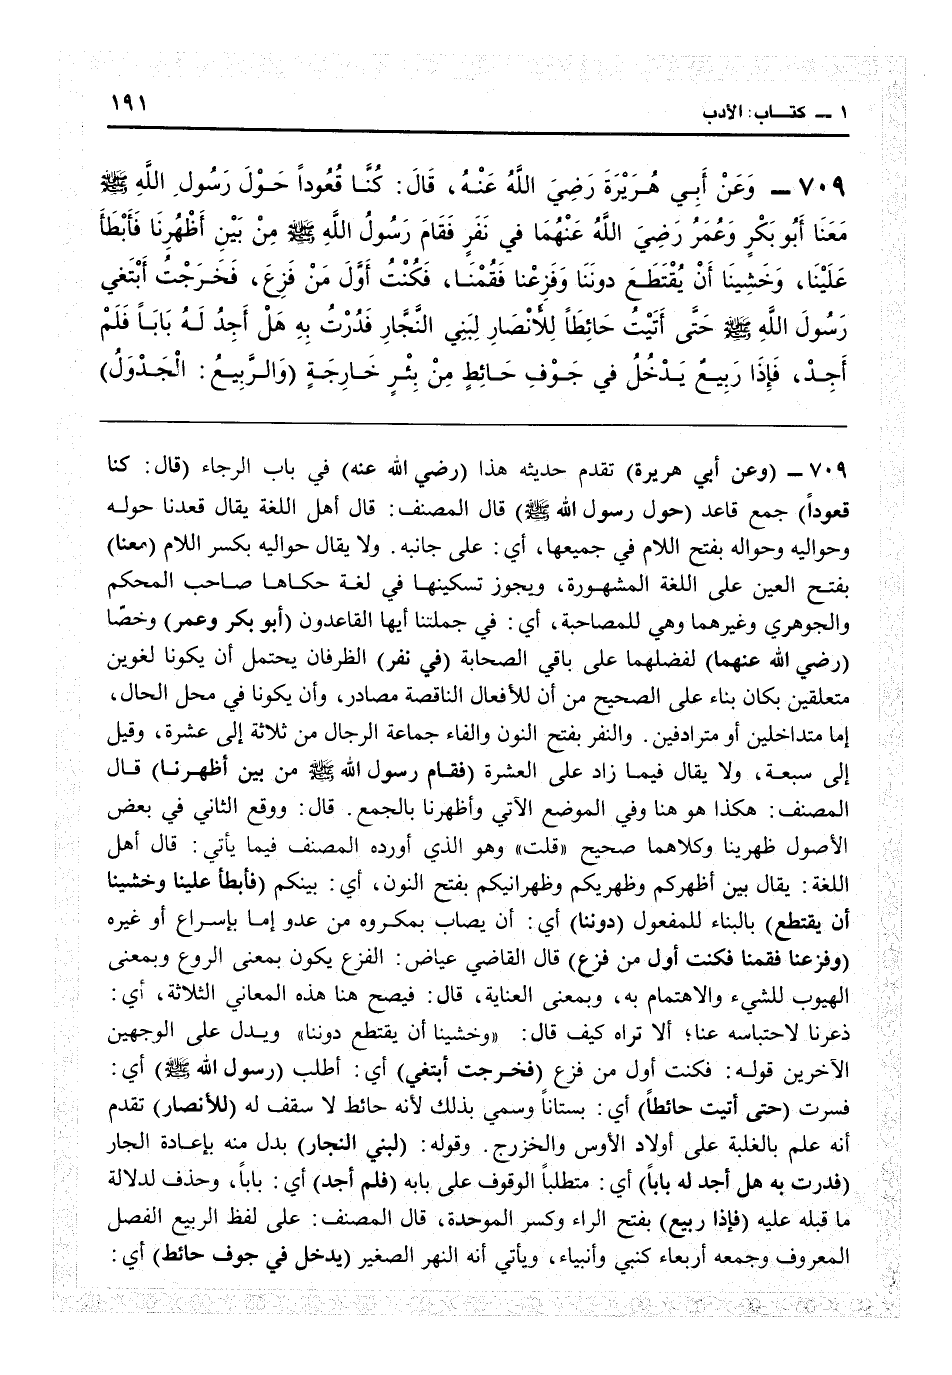 ١ ــ كتــاب: الأدب
١٩١
٧٠٩ ــ وَعَنْ أَبِـي هُـرَيْرَةَ رَضِـيَ اللَّهُ عَنْـهُ، قَالَ: كُنَّـا قُعُوداً حَـوْلَ رَسُولِ اللَّهِ ﷺ
مَعَنَا أَبُو بَكْرٍ وَعُمَرُ رَضِيَ اللَّهُ عَنْهُمَا في نَفَرٍ فَقَامَ رَسُولُ اللَّهِ ﷺ مِنْ بَيْنِ أَظْهُرِنَا فَأَبْطَأَ
عَلَيْنَا، وَخَشِينَا أَنْ يُقْتَطَـعَ دونَنَا وَفَزِعْنا فَقُمْنَـا، فَكُنْتُ أَوَّلَ مَنْ فَزِعَ، فَخَـرَجْتُ أَبْتَغي
رَسُولَ اللَّهِ ﷺ حَتَّى أَتَيْتُ حَائِطَاً لِلْأَنْصَارِ لِبَنِي النَّجَّارِ فَدُرْتُ بِهِ هَلْ أَجِدُ لَـهُ بَابَـاً فَلَمْ
أَجِـدْ، فَإِذَا رَبِيـعٌ يَـدْخُلُ في جَـوْفِ حَـائِطٍ مِنْ بِئْـرٍ خَـارِجَـةٍ (وَالـرَّبِيعُ: الْجَدْوَلُ)
٧٠٩ ــ (وعن أبي هريرة) تقدم حديثه هذا (رضي الله عنه) في باب الرجاء (قال: كنا
قعوداً) جمع قاعد (حول رسول الله ﷺ) قال المصنف: قال أهل اللغة يقال قعدنا حولـه
وحواليه وحواله بفتح اللام في جميعها، أي: على جانبه. ولا يقال حواليه بكسر اللام (معنا)
بفتـح العين على اللغة المشهـورة، ويجوز تسكينهـا في لغـة حكـاهـا صـاحب المحكم
والجوهري وغيرهما وهي للمصاحبة، أي: في جملتنا أيها القاعدون (أبو بكر وعمر) وخصّا
(رضي الله عنهما) لفضلهما على باقي الصحابة (في نفر) الظرفان يحتمل أن يكونا لغوين
متعلقين بكان بناء على الصحيح من أن للأفعال الناقصة مصادر، وأن يكونا في محل الحال،
إما متداخلين أو مترادفين. والنفر بفتح النون والفاء جماعة الرجال من ثلاثة إلى عشرة، وقيل
إلى سبعـة، ولا يقال فيمـا زاد على العشرة (فقـام رسول الله ﷺ من بين أظهـرنـا) قـال
المصنف: هكذا هو هنا وفي الموضع الآتي وأظهرنا بالجمع. قال: ووقع الثاني في بعض
الأصول ظهرينا وكلاهما صحيح «قلت» وهو الذي أورده المصنف فيما يأتي: قال أهل
اللغة: يقال بين أظهركم وظهريكم وظهرانيكم بفتح النون، أي: بينكم (فأبطأ علينا وخشينا
أن يقتطع) بالبناء للمفعول (دوننا) أي: أن يصاب بمكـروه من عدو إمـا بإسـراع أو غيره
(وفزعنا فقمنا فكنت أول من فزع) قال القاضي عياض: الفزع يكون بمعنى الروع وبمعنى
الهبوب للشيء والاهتمام به، وبمعنى العناية، قال: فيصح هنا هذه المعاني الثلاثة، أي:
ذعرنا لاحتباسه عنا؛ ألا تراه كيف قال: «وخشينا أن يقتطع دوننا» ويـدل على الوجهين
الآخرين قولـه: فكنت أول من فزع (فخـرجت أبتغي) أي: أطلب (رسول الله ﷺ) أي:
فسرت (حتى أتيت حائطاً) أي: بستاناً وسمي بذلك لأنه حائط لا سقف له (للأنصار) تقدم
أنه علم بالغلبة على أولاد الأوس والخزرج. وقوله: (لبني النجار) بدل منه بإعـادة الجار
(فدرت به هل أجد له باباً) أي: متطلباً الوقوف على بابه (فلم أجد) أي: باباً، وحذف لدلالة
ما قبله عليه (فإذا ربيع) بفتح الراء وكسر الموحدة، قال المصنف: على لفظ الربيع الفصل
المعروف وجمعه أربعاء كنبي وأنبياء، ويأتي أنه النهر الصغير (يدخل في جوف حائط) أي: